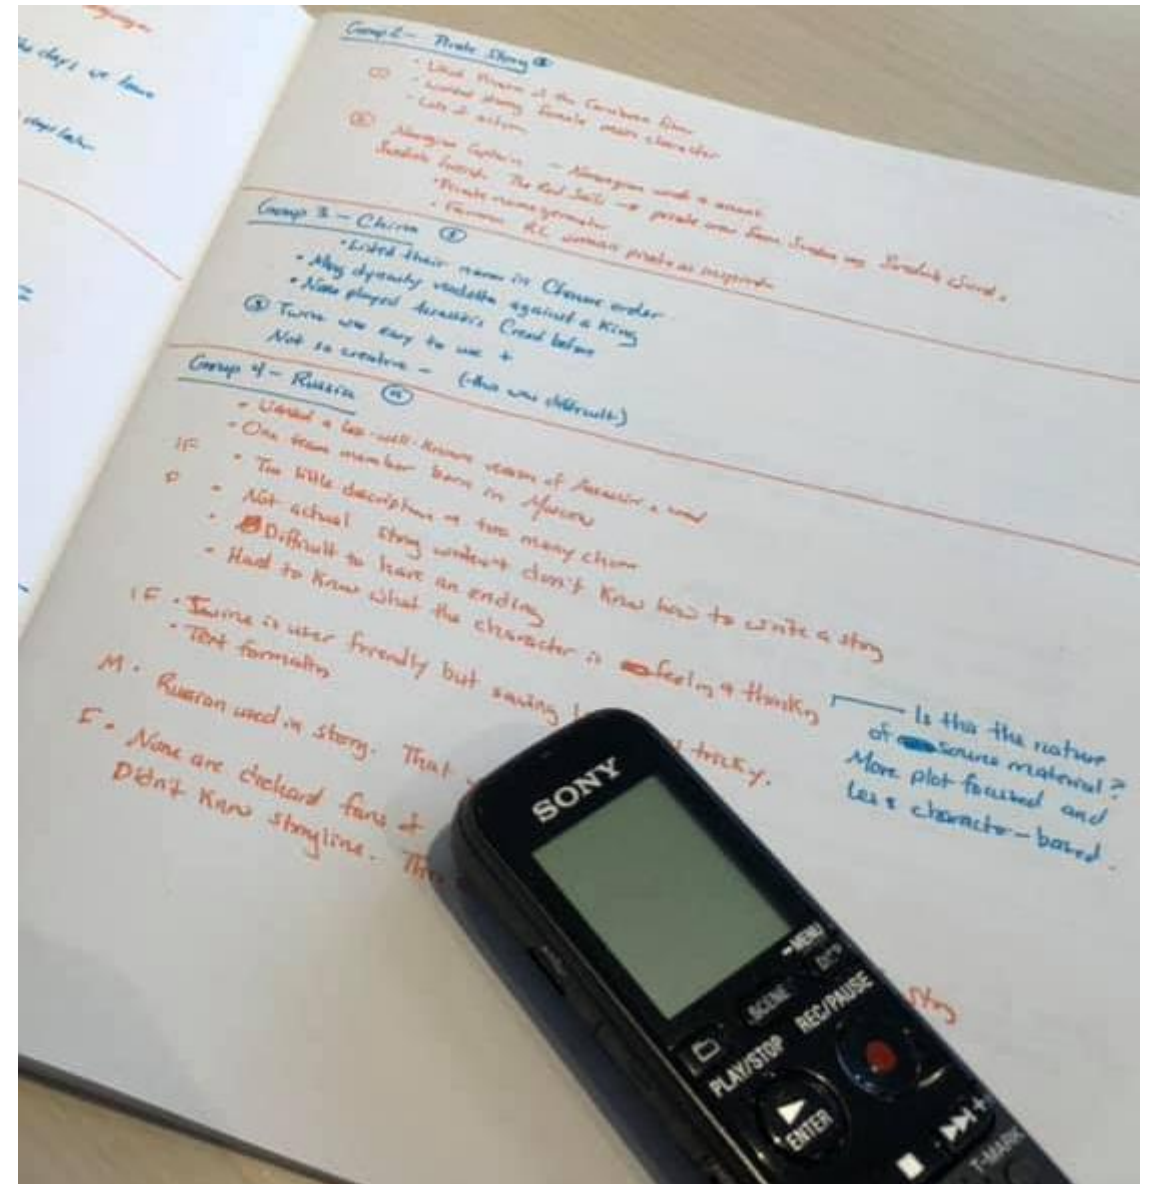 the days we leave
days later
Group 2 - Pirate Story
· Liked Pirates of the Caribbean films
· Wanted strong female main character
· Lots of action
Norwegian Captain - Norwegian with a accent
Swedish The Red Sails → pirate crew from Sweden Swedish
· Pirate name generator
· Famous RL woman pirate as
Group 3 - China
· Listed their names in Chinese order
· Ming dynasty vendetta against a King
· None played Assassin's Creed before
Twine was easy to use +
Not so creative - (this was difficult)
Group 4 - Russia
· Wanted a less-well-known version of Assassin's
· One team member born in Moscow
IF · Too little description + too many
P · Not actual story writers + don't know how to write a story
· Difficult to have an ending
· Hard to know what the character is feeling + thinking
IF · Twine is user friendly but saving tricky.
· Text formatting
M · Russian used in story. That
F · None are diehard fans +
Didn't know storyline.
story
Is this the nature
of source material?
More plot focused and
less character-based.
SONY
MENU
DISP
SCENE
REC/PAUSE
PLAY/STOP
ENTER
T-MARK